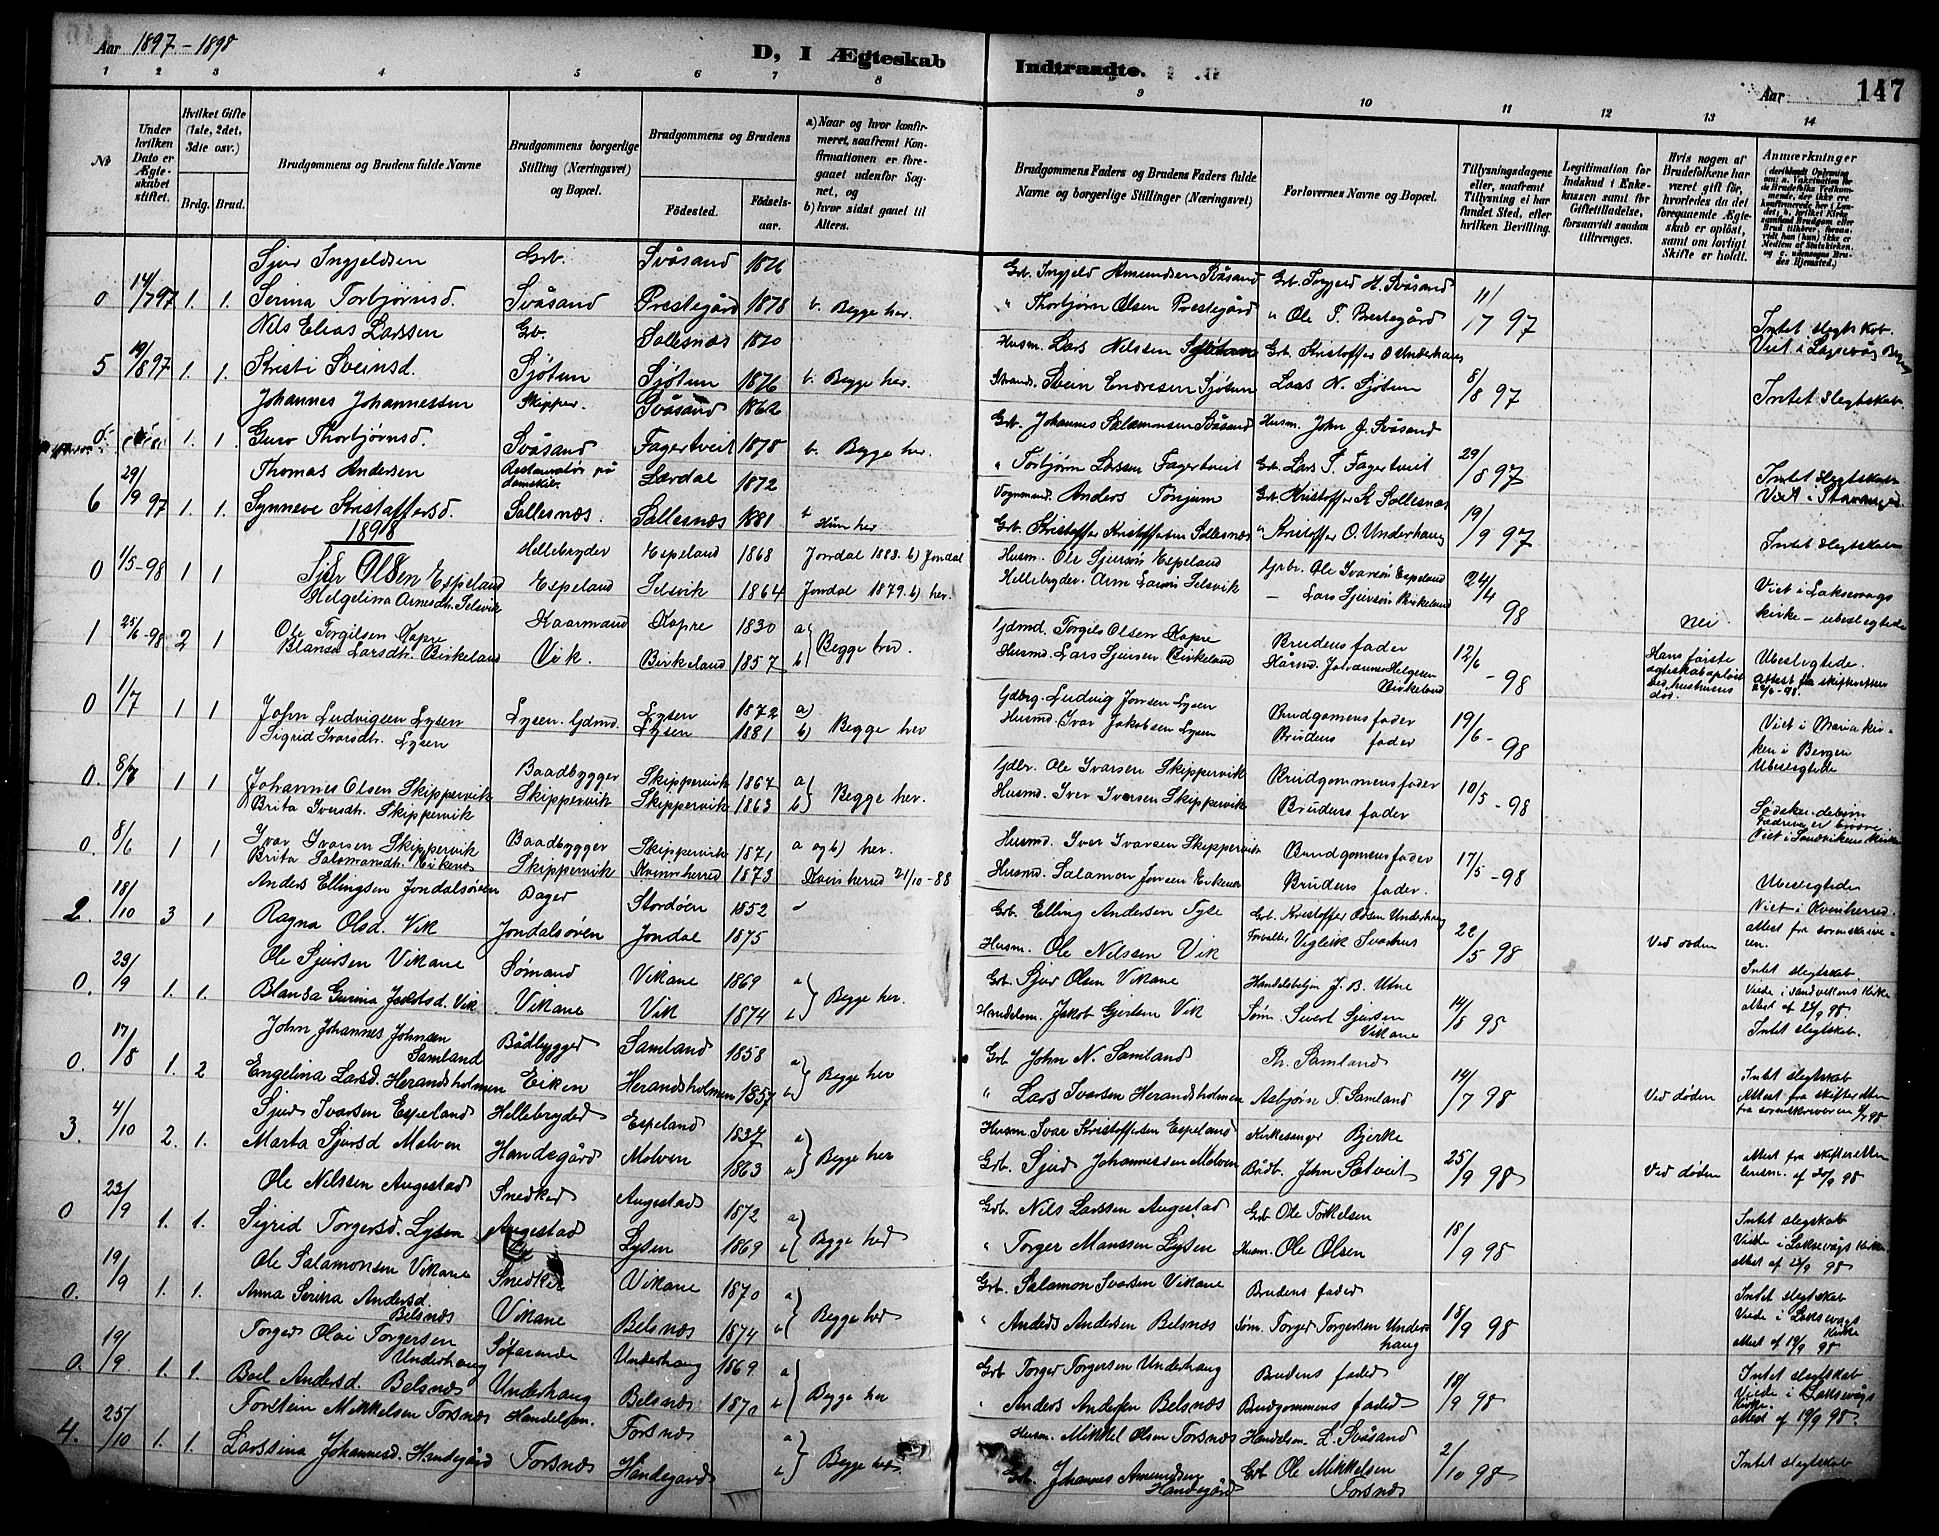 Aar 1897-1898
D, I Ægteskab
Indtraadte.
Aar
147
1 2 3 4 5 6 7 8 9 10 11 12 13 14
No
Under hvilken Dato er Ægteskabet stiftet.
Hvilket Gifte (1ste, 2det, 3die osv.)
Brdg. Brud.
Brudgommens og Brudens fulde Navne
Brudgommens borgerlige Stilling (Næringsvei) og Bopæl.
Brudgommens og Brudens
Fødested.
Fødselsaar.
a) Naar og hvor konfirmeret, saafremt Konfirmationen er foregaaet udenfor Sognet, og
b) hvor sidst gaaet til Alters.
Brudgommens Faders og Brudens Faders fulde Navne og borgerlige Stillinger (Næringsvei)
Forlovernes Navne og Bopæl.
Tillysningsdagene eller, saafremt Tillysning ei har fundet Sted, efter hvilken Bevilling.
Legitimation for Indskud i Enkekassen samt for Giftetilladelse, forsaavidt saadan tiltrænges.
Hvis nogen af Brudefolkene har været gift før, hvorledes da det foregaaende Ægteskab er opløst, samt om lovligt Skifte er holdt.
Anmærkninger
Sjur Ingjeldsen Grb. Svåsand 1876 Grb. Ingjeld Amundsen Svåsand Grb. Torgjeld H. Svåsand
0 14/7 97 1. 1. Serina Torbjørnsd. Svåsand Prestegård 1878 b. Begge her. " Thorbjørn Olsen Prestegård " Ole T. Prestegård 11/7 97 Intet slegtskab.
Nils Elias Larssen Grb. Sollesnæs 1870 Husm. Lars Nilssen Grb. Kristoffer O Underhaug Viet i Laxevåg
5 19/8 97 1. 1. Kristi Sveinsd. Sjøtun Sjøtun 1876 b. Begge her. Svein Endresen Sjøtun Lars N. Sjøtun 8/8 97 Intet slegtskab.
Johannes Johannessen Skipper. Svåsand 1862 Grb. Johannes Salamonsen Svåsand Husm. John J. Svåsand
1. 1. Guro Thorbjørnsd. Svåsand Fagertveit 1878 b. Begge her. " Torbjørn Larsen Fagertveit Grb. Lars T. Fagertveit 29/8 97 Intet slegtskab
Thomas Andersen Restauratør på damskib. Lærdal 1872 Vognmand. Anders Tønjum Grb. Kristoffer K Sollesnæs
6 29/9 97 1. 1. Synneve Kristoffersd. Sollesnæs. Sollesnæs 1881 b Hun her Grb. Kristoffer Kristoffersen Sollesnæs " Kristoffer O. Underhaug 19/9 97 Intet slegtskab
1898
0 1/5-98 1 1 Sjur Olsen Espeland Hellebryder Espeland 1868 Jondal 1883. b) Jondal Husm. Ole Sjursøn Espeland Grbr. Ole Ivarsøn Espeland 24/4 98 Viet i Laksevaags
Helgelina Arnesdtr. Selsvik Espeland Selsvik 1864 Jondal 1879. b) her. Hellebryder. Arne Larsøn Selsvik - Lars Sjursøn Birkeland kirke - ubeslegtede
1 25/6-98 2 1 Ole Torgilsen Kopre Kaarmand Kopre 1830 a) Begge her. Gdmd. Torgils Olsen Kopre Brudens fader 12/6 - 98 nei
Blansa Larsdtr. Birkeland Vik. Birkeland 1857 b) Husmd. Lars Sjursen Birkeland Kårmd. Johannes Helgesen Birkeland Hans første ægteskab opløst ved hustruens død. Ubeslegtede. Attest fra skifteretten
0 1/7 1 1 John Ludvigsen Lysen Lysen. Gdmd. Lysen 1872 a) Gdbrg. Ludvig Jonsen Lysen Brudgomens fader 19/6 - 98 Viet i Mariakirken i Bergen
Sigrid Ivarsdtr. Lysen Lysen 1881 b) Begge her Husmd. Ivar Jakobsen Lysen Brudens fader Ubeslegtede
0. 8/7 1 1 Johannes Olsen Skippervik Baadbygger Skippervik 1867 a) Begge her. Gdbr. Ole Ivarsen Skippervik Brudgommens fader 10/5 - 98
Brita Iversdtr. Skippervik Skippervik Skippervik 1863 b) Husmd. Iver Ivarsen Skippervik Brudens fader Sødskendebørn
0. 8/6 1 1 Ivar Ivarsen Skippervik Baadbygger Skippervik 1871 a og b) her. Husmd. Iver Ivarsen Skippervik Brudgomens fader 17/5 - 98 Viet i Sandvikens Kirke
Brita Salomonsdtr. Eikenes Skippervik Kvinnherred 1873 Kvinherred 21/10-88 Husmd. Salamon Jonsen Eikenes Brudens fader. Ubeslegtede
2. 18/10 3 1 Anders Ellingsen Jondalsøren Bager Stordøen 1852 Grb. Elling Andersen Tyse Grb. Kristoffer Olsen Underhaug Viet i Kvinherred.
Ragna Olsd. Vik Jondalsøren Jondal 1875 Husm. Ole Nilssen Vik Forvalter Vigleik Svaahus 22/5 98 Ved døden Attest fra sorenskriveren.
0. 23/9 1. 1. Ole Sjursen Vikane Sømand Vikane 1869 a) Begge her. Grb. Sjur Olsen Vikane Handelsbetjen J. B. Utne Intet slegtskab.
Blansa Gurina Jacobsd. Vik Vikane Vik 1874 b) Handelsm. Jakob Gjertsen Vik Søm. Sivert Sjursen Vikane 14/8 98 Viede i Sandvikens Kirke
0. 17/8 1. 2 John Johannes Johnsen Samland Bådbygger Samland 1858 a) Begge her Grb John N. Samland Th. Samland Intet slegtskab.
Engelina Larsd. Herandsholmen Eiken Herandsholmen 1857 b) " Lars Ivarsen Herandsholmen Asbjørn T. Samland 14/7 98 Ved døden Intet slegtskab
3. 4/10 2. 1. Sjur Ivarsen Espeland Hellebryder Espeland 1837 a) Begge her Husm. Ivar Kristoffersen Espeland Kirkesanger Bjerke
Marta Sjursd Molven Handegård Molven 1863 b) Grb. Sjur Johannessen Molven Bådb. John Sætveit 25/9 98 Ved døden Attest fra skifteretten
0 23/9 1. 1. Ole Nilssen Augestad Snedker Augestad 1872 a) Begge her Grb. Nils Larssen Augestad Grb Ole Torkelsen
Sigrid Torgersd. Lysen Augestad Lysen 1869 b) " Torger Monssen Lysen Husm. Ole Olsen 18/9 98 Intet slegtskab Viede i Laksevågs Kirke.
0. 19/9 1. 1. Ole Salamonsen Vikane Snedker Vikane 1870 a) Begge her Grb. Salamon Ivarsen Vikane Brudens fader
Anna Serina Andersd. Belsnæs Vikane Belsnæs 1874 b) " Anders Andersen Belsnæs Søm. Torger Torgersen Underhaug 18/9 98 Intet slegtskab Viede i Laksevågs Kirke Attest af 19/9 98
0. 19/9 1. 1. Torger Olai Torgersen Underhaug Søfarende Underhaug 1869 a) Begge her Grb Torger Torgersen Underhaug Brudens fader
Boel Andersd. Belsnæs Underhaug Belsnæs 1870 b) " Anders Andersen Belsnæs Brudgommens fader 18/9 98 Intet slegtskab Viede i Laksevågs Kirke. Attest af 19/9 98.
4. 25/10 1. 1. Torstein Mikkelsen Torsnæs Handelsm. Torsnæs a) Begge her. Husm. Mikkel Olsen Torsnæs Handelsm. L. Svåsand
Larssina Johannesd. Handegård Torsnæs Håndegård b) Grb. Johannes Amundsen Handegård Grb Ole Mikkelsen Torsnæs 2/10 98 Intet slegtskab